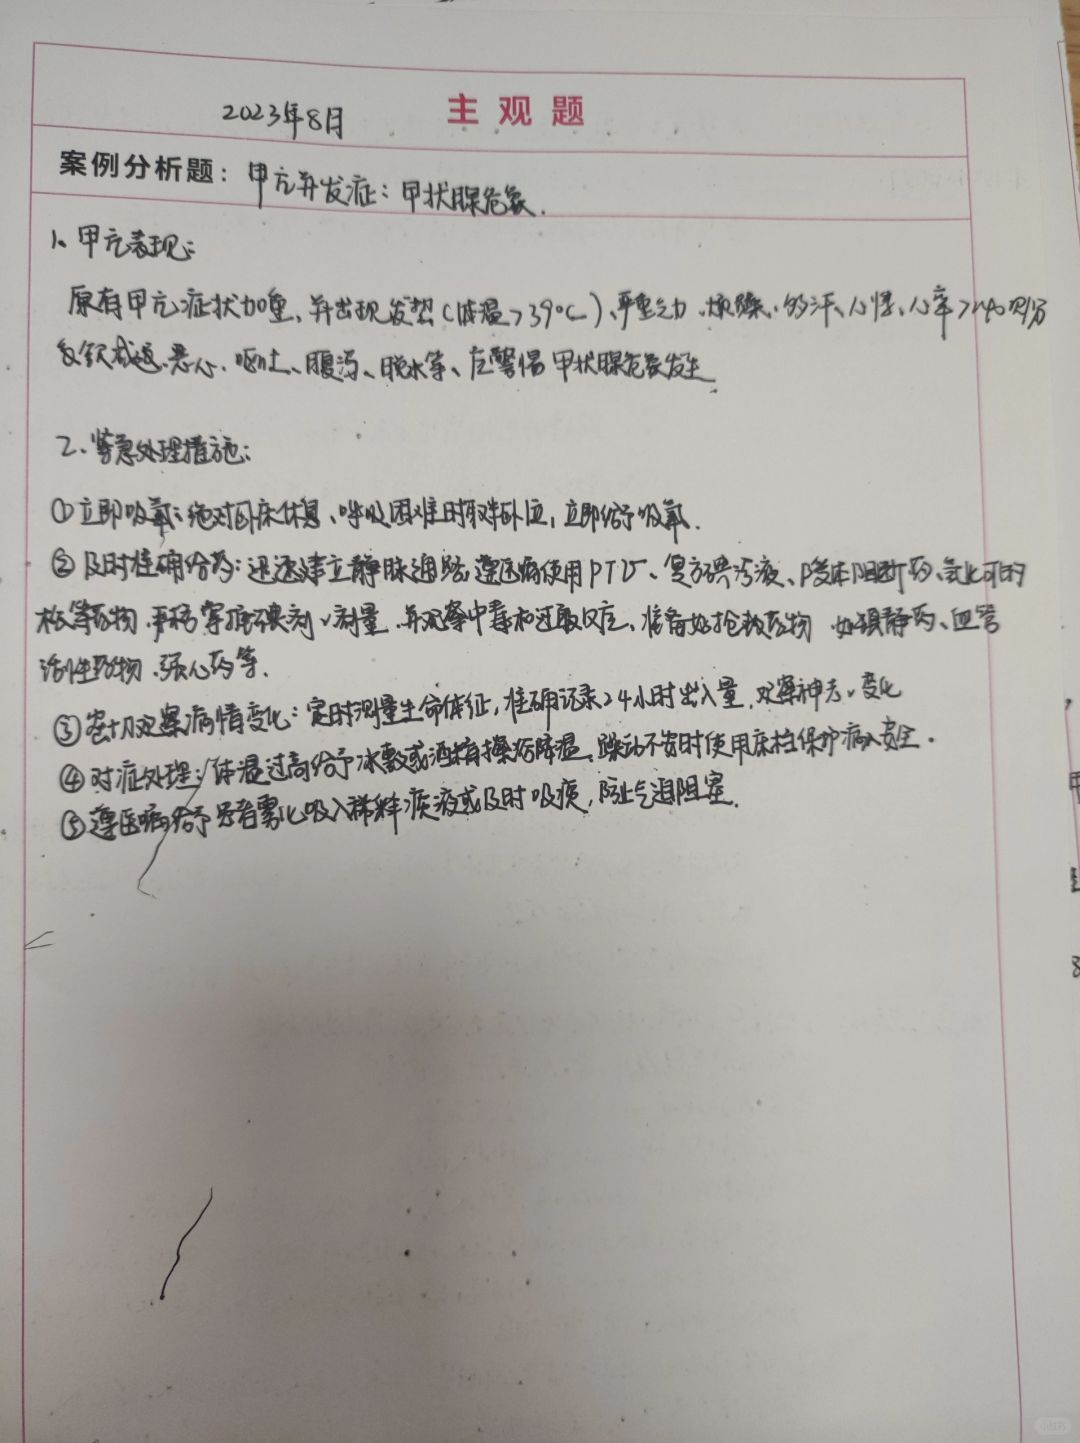 主观题
2023年8月
案例分析题：甲亢并发症：甲状腺危象.
1、甲亢表现：
原有甲亢症状加重、并出现发热(体温>39℃)、严重乏力、烦躁、多汗、心悸、心率>140次/分
食欲减退、恶心、呕吐、腹泻、脱水等、应警惕甲状腺危象发生
2、紧急处理措施：
①立即吸氧：绝对卧床休息、呼吸困难时取半卧位，立即给予吸氧.
②及时准确给药：迅速建立静脉通路，遵医嘱使用PTU、复方碘溶液、β受体阻断药、氢化可的
松等药物.严格掌握碘剂、剂量.并观察中毒和过敏反应、准备好抢救药物 如镇静药、血管
活性药物、强心药等.
③密切观察病情变化：定时测量生命体征，准确记录24小时出入量，观察神志、变化
④对症处理：体温过高给予冰敷或酒精擦浴降温、躁动不安时使用床档保护病人安全.
⑤遵医嘱给予患者雾化吸入稀释痰液或及时吸痰，防止气道阻塞.